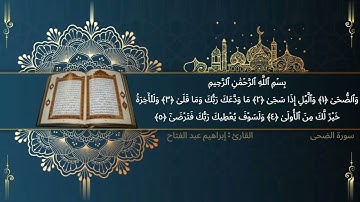 بِسْمِ ٱللَّهِ ٱلرَّحْمَٰنِ ٱلرَّحِيمِ
وَٱلضُّحَىٰ ﴿١﴾ وَٱلَّيْلِ إِذَا سَجَىٰ ﴿٢﴾ مَا وَدَّعَكَ رَبُّكَ وَمَا قَلَىٰ ﴿٣﴾ وَلَلْءَاخِرَةُ
خَيْرٌ لَّكَ مِنَ ٱلْأُولَىٰ ﴿٤﴾ وَلَسَوْفَ يُعْطِيكَ رَبُّكَ فَتَرْضَىٰٓ ﴿٥﴾
سورة الضحى
القارئ : إبراهيم عبد الفتاح